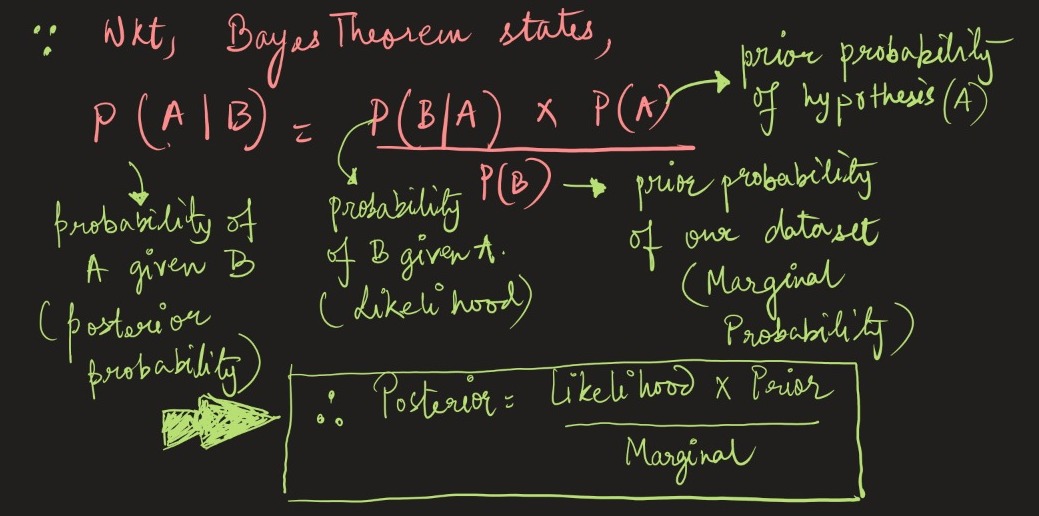 ∵ Wkt, Bayes Theorem states,
P(A|B) = P(B|A) × P(A)
P(B)
prior probability
of hypothesis (A)
probability of
A given B
(posterior
probability)
probability
of B given A.
(Likelihood)
prior probability
of our dataset
(Marginal
Probability)
∴ Posterior = Likelihood × Prior
Marginal